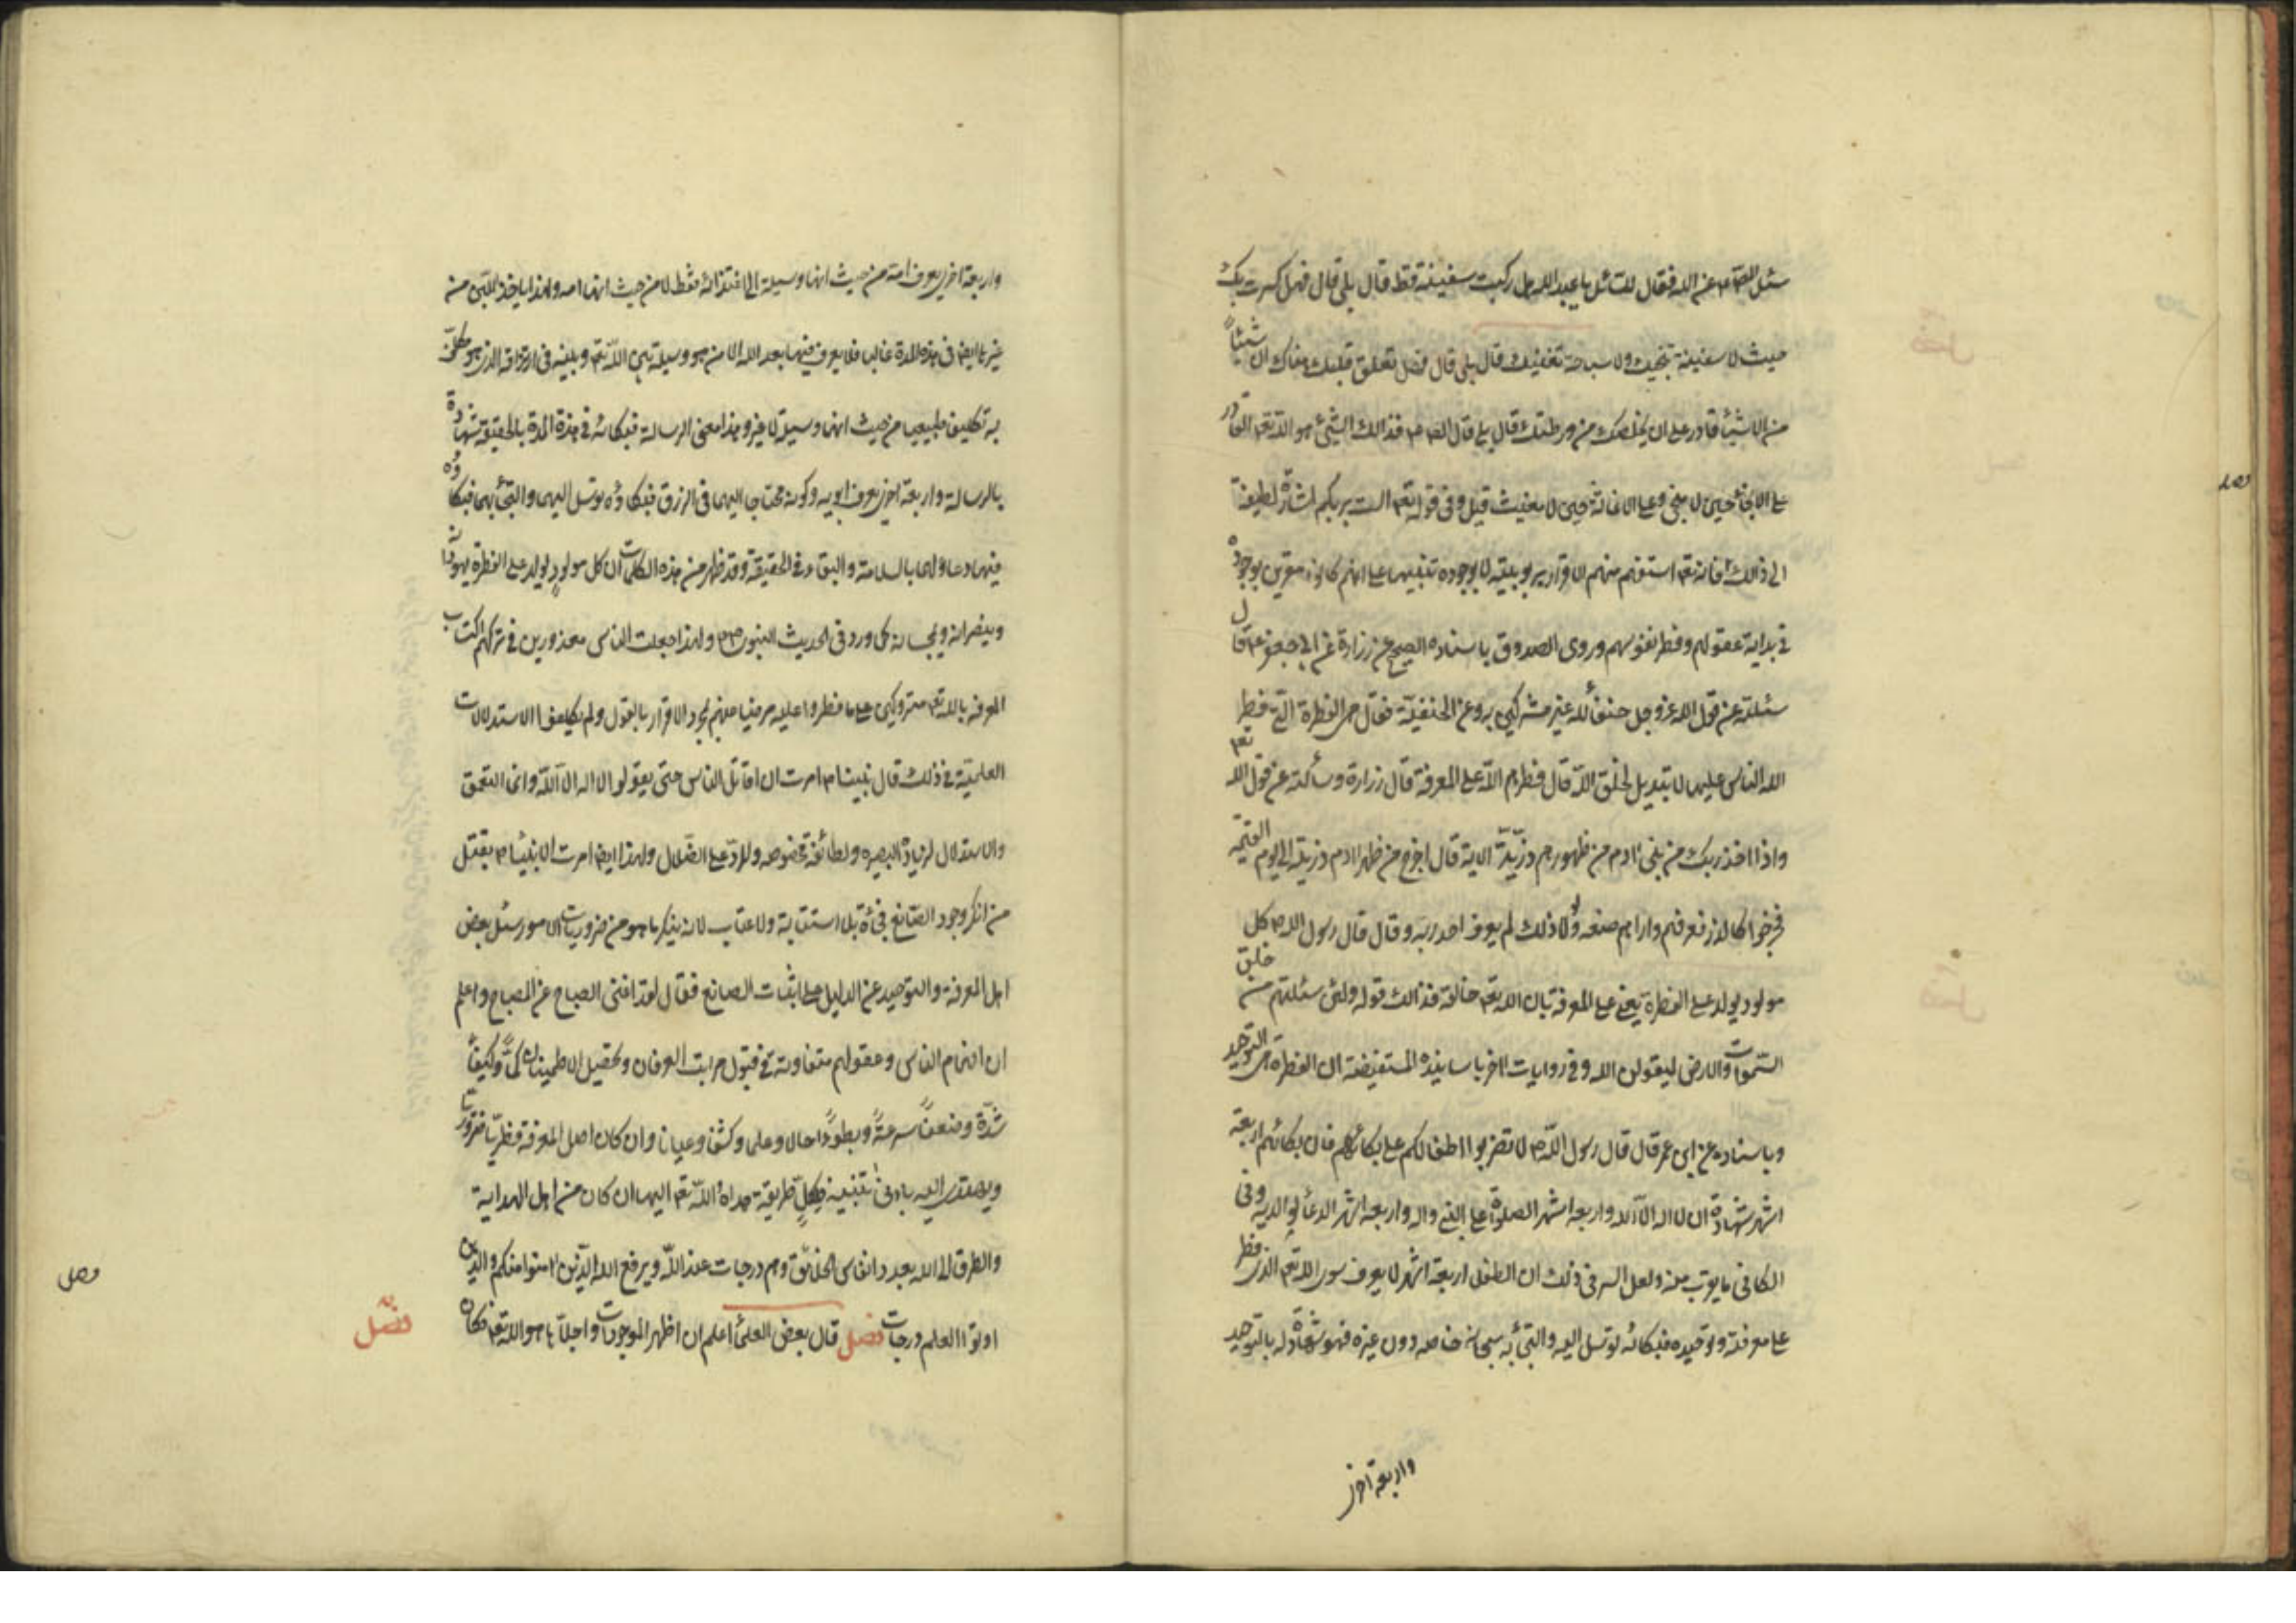 سئل الصّ عم عن الله فقال للسّائل يا عبد الله هل ركبت سفينة قط قال بلى قال فهل كسرت بك
حيث لا سفينة تنجيك ولا سباحة تغنيك قال بلى قال فهل تعلق قلبك هناك ان شيئاً
من الاشياء قادر على ان يخلصك من ورطتك قال بلى قال الصّ عم فذالك الشيء هو الله تعم القادر
على الانجاء حين لا منجي وعلى الاغاثة حين لا مغيث قيل وفي قوله تعم الست بربكم اشارة لطيفة
الى ذلك فانه تعم استفهم منهم الاقرار بربوبيته لا بوجوده تنبيها على انهم كانوا مقرين بوجوده
في بداية عقولهم وفطر نفوسهم وروى الصدوق باسناده الصحيح عن زرارة عن ابي جعفر عم قال
سئلته عن قول الله عز وجل حنفاء لله غير مشركين به وعن الحنفيّة فقال هي الفطرة التي فطر
الله الناس عليها لا تبديل لخلق الله قال فطرهم الله على المعرفة قال زرارة وسألته عن قول الله تعم
واذ اخذ ربك من بني ادم من ظهورهم ذرّيّة الاية قال اخرج من ظهر ادم ذريته الى يوم القيمة
فخرجوا كالذر فعرفهم واراهم صنعه ولولا ذلك لم يعرف احد ربه وقال قال رسول الله ص كل
مولود يولد على الفطرة يعني على المعرفة بان الله تعم خالقه فذالك قوله ولئن سئلتهم من خلق
السّموات والارض ليقولن الله وفي روايات اخر باسانيده المستفيضة ان الفطرة هي التوحيد
وباسناده عن ابن عمر قال قال رسول الله ص لا تضربوا اطفالكم على بكائهم فان بكائهم اربعة
اشهر شهادة ان لا اله الا الله واربعة اشهر الصلوة على النبي واله واربعة اشهر الدعاء لوالديه وفي
الكافي ما يقرب منه ولعل السر في ذلك ان الطفل اربعة اشهر لا يعرف سوى الله تعم الذي فطر
على معرفته وتوحيده فبكائه توسل اليه والتجاء به سبحانه خاصه دون غيره فهو شهادة له بالتوحيد
واربعة اخرى
واربعة اخرى يعرف امه من حيث انها وسيلة الى اغتذائه فقط لا من حيث انها امه ولهذا ياخذ اللبن من
غيرها ايضا في هذه المدة غالبا فلا يعرف فيها بعد الله الا من هو وسيلة بين الله تعم وبينه في ارتزاقه الذي هو مكلف
به تكليفا طبيعيا من حيث انها وسيلة لا غير وهذا معنى الرسالة فبكائه في هذه المدة بالحقيقة شهادة
بالرسالة واربعة اخرى يعرف ابويه وكونه محتاجا اليهما في الرزق فبكاؤه توسل اليهما والتجاء بهما فبكاؤه
فيها دعاء لهما بالسلامة والبقاء في الحقيقة وقد ظهر من هذه الكلمات ان كل مولود يولد على الفطرة يهودانه
وينصرانه ويمجسانه كما ورد في الحديث النبوي ص ولهذا جعلت الناس معذورين في تركهم اكتساب
المعرفة بالله تعم متروكين على ما فطروا عليه مرضيا منهم بمجرد الاقرار بالقول ولم يكلفوا الاستدلالات
العلميّة في ذلك قال نبينا ص امرت ان اقاتل الناس حتى يقولوا لا اله الا الله وانما التعمق
والاستدلال لزيادة البصيره ولطائفة مخصوصه وللردّ على الضلال ولهذا ايضا امرت الانبياء ص بقتل
من انكر وجود الصّانع فجأة بلا استتابة ولا عتاب لانه ينكر ما هو من ضروريات الامور سئل بعض
اهل المعرفة والتوحيد عن الدليل على اثبات الصانع فقال لقد اغنى الصباح عن المصباح واعلم
ان افهام الناس وعقولهم متفاوتة في قبول مراتب العرفان وتحصيل الاطمينان كمّاً وكيفاً
شدّة وضعفاً سرعةً وبطوءاً حالا وعلما وكشفا وعيانا وان كان اصل المعرفة فطريّا ضروريّا
ويهتدى اليه بادنى تنبيه فلكلّ طريقة هداه الله تعم اليها ان كان من اهل الهداية
والطرق الى الله بعدد انفاس الخلائق وهم درجات عند الله ويرفع الله الذين امنوا منكم والذين
اوتوا العلم درجات فصل قال بعض العلماء اعلم ان اظهر الموجودات واجلاّها هو الله تعم فكان
فصل
وصل